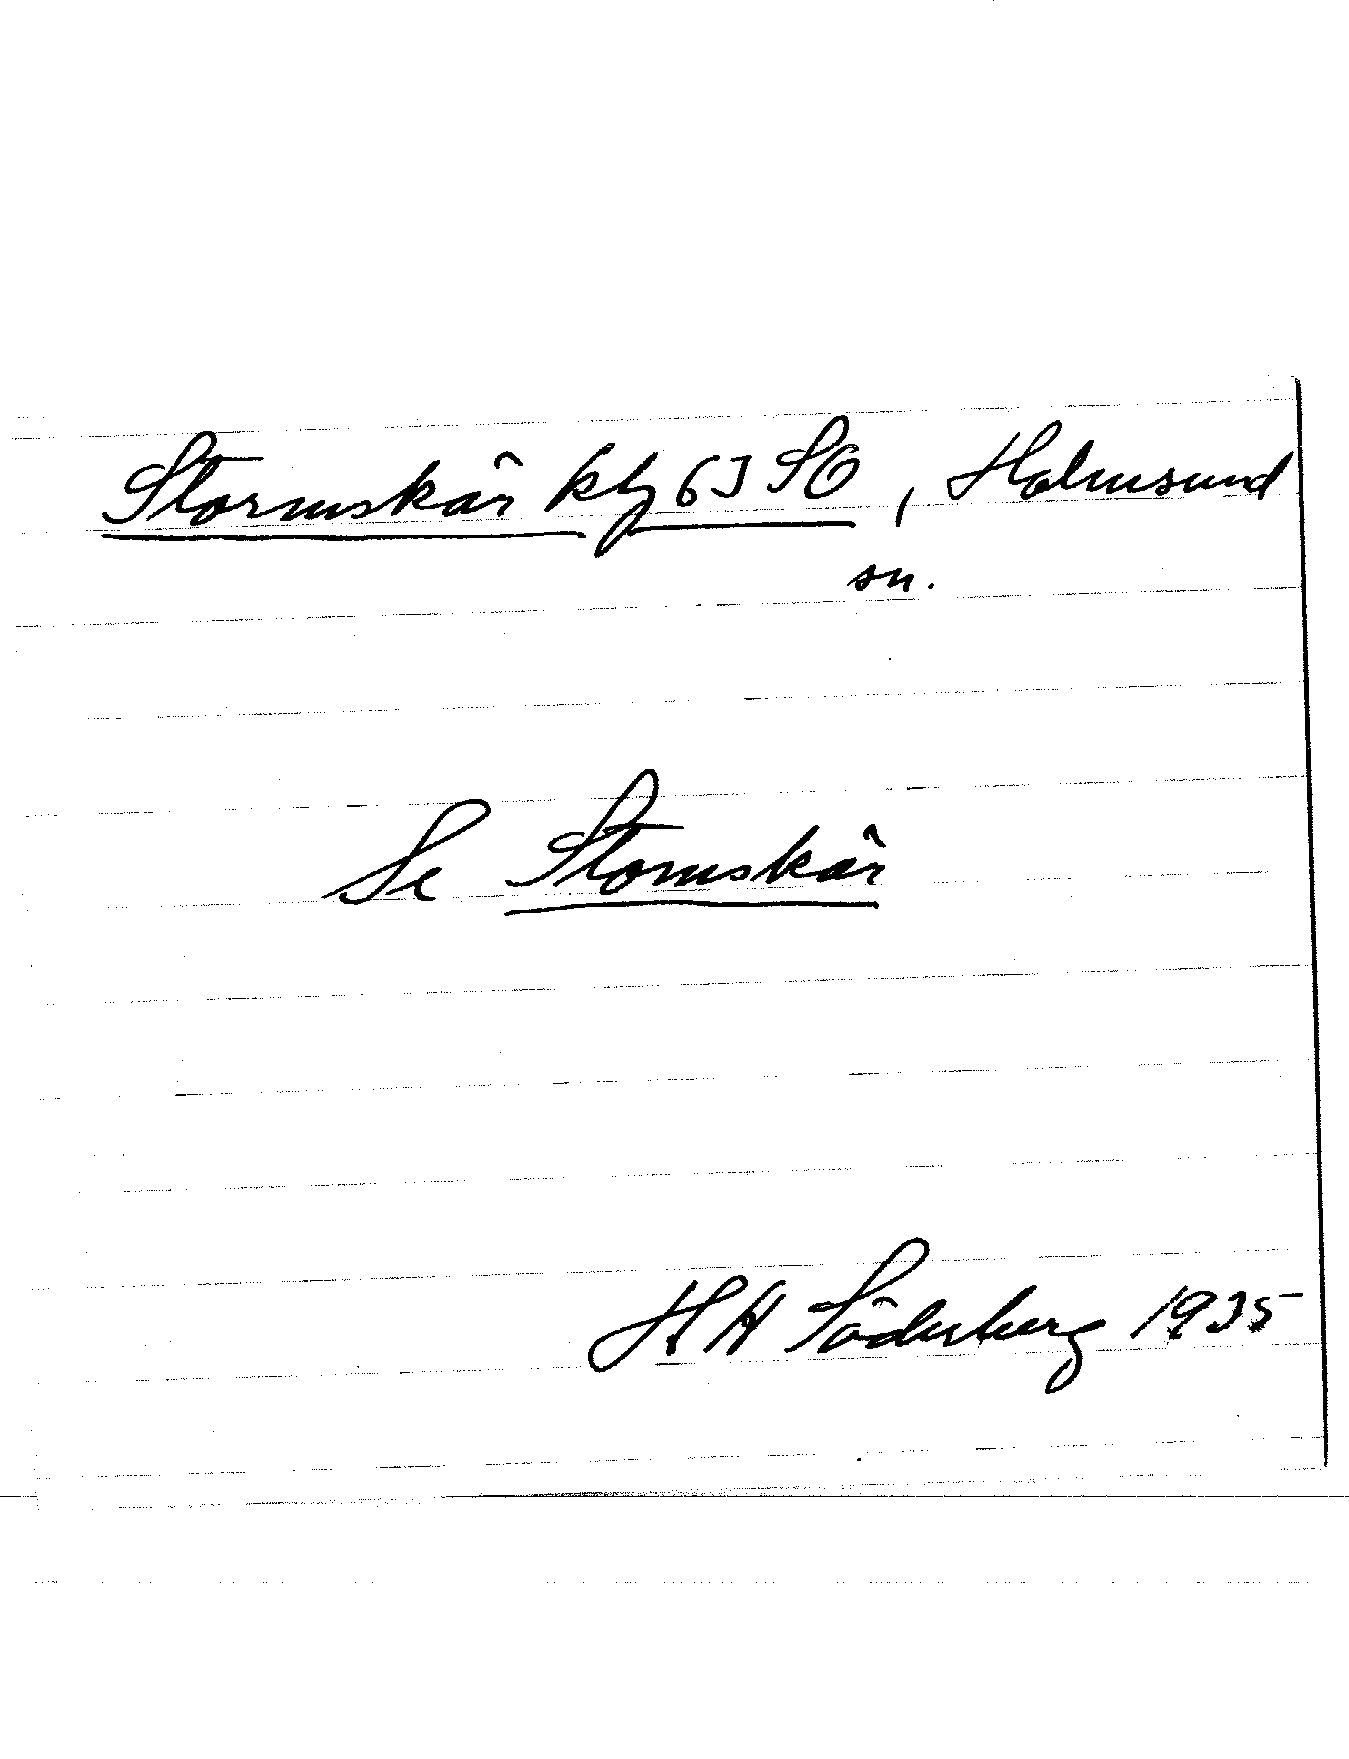 Stormskär kbl 63 SO, Holmsund
sn.
Se Stomskär
HH Söderberg 1935